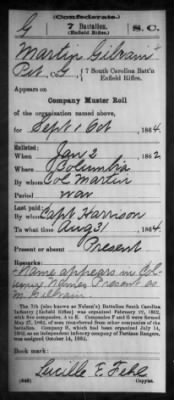 (Confederate.)
G 7 Battalion. S.C.
(Enfield Rifles.)
Martin Gilram
Pvt, Co. G, 7 South Carolina Batt'n
Enfield Rifles.
Appears on
Company Muster Roll
of the organization named above,
for Sept & Oct, 1864.
Enlisted:
When Jan 2, 1862.
Where Columbia
By whom Col Martin
Period war
Last paid:
By whom Capt Harrison
To what time Aug 31, 1864.
Present or absent Present
Remarks:
Name appears in Col-
umn Names Present as
M.
The 7th (also known as Nelson's) Battalion South Carolina
Infantry (Enfield Rifles) was organized February 22, 1862,
with five companies, A to E. Companies F and G were formed
May 2, 1862, of men transferred from other companies of the
battalion. Company H, which had been organized July 14,
1862, as an independent company of Partisan Rangers,
was assigned October 14, 1862.
Book mark:
Lucille E. Fehl
(642) Copyist.